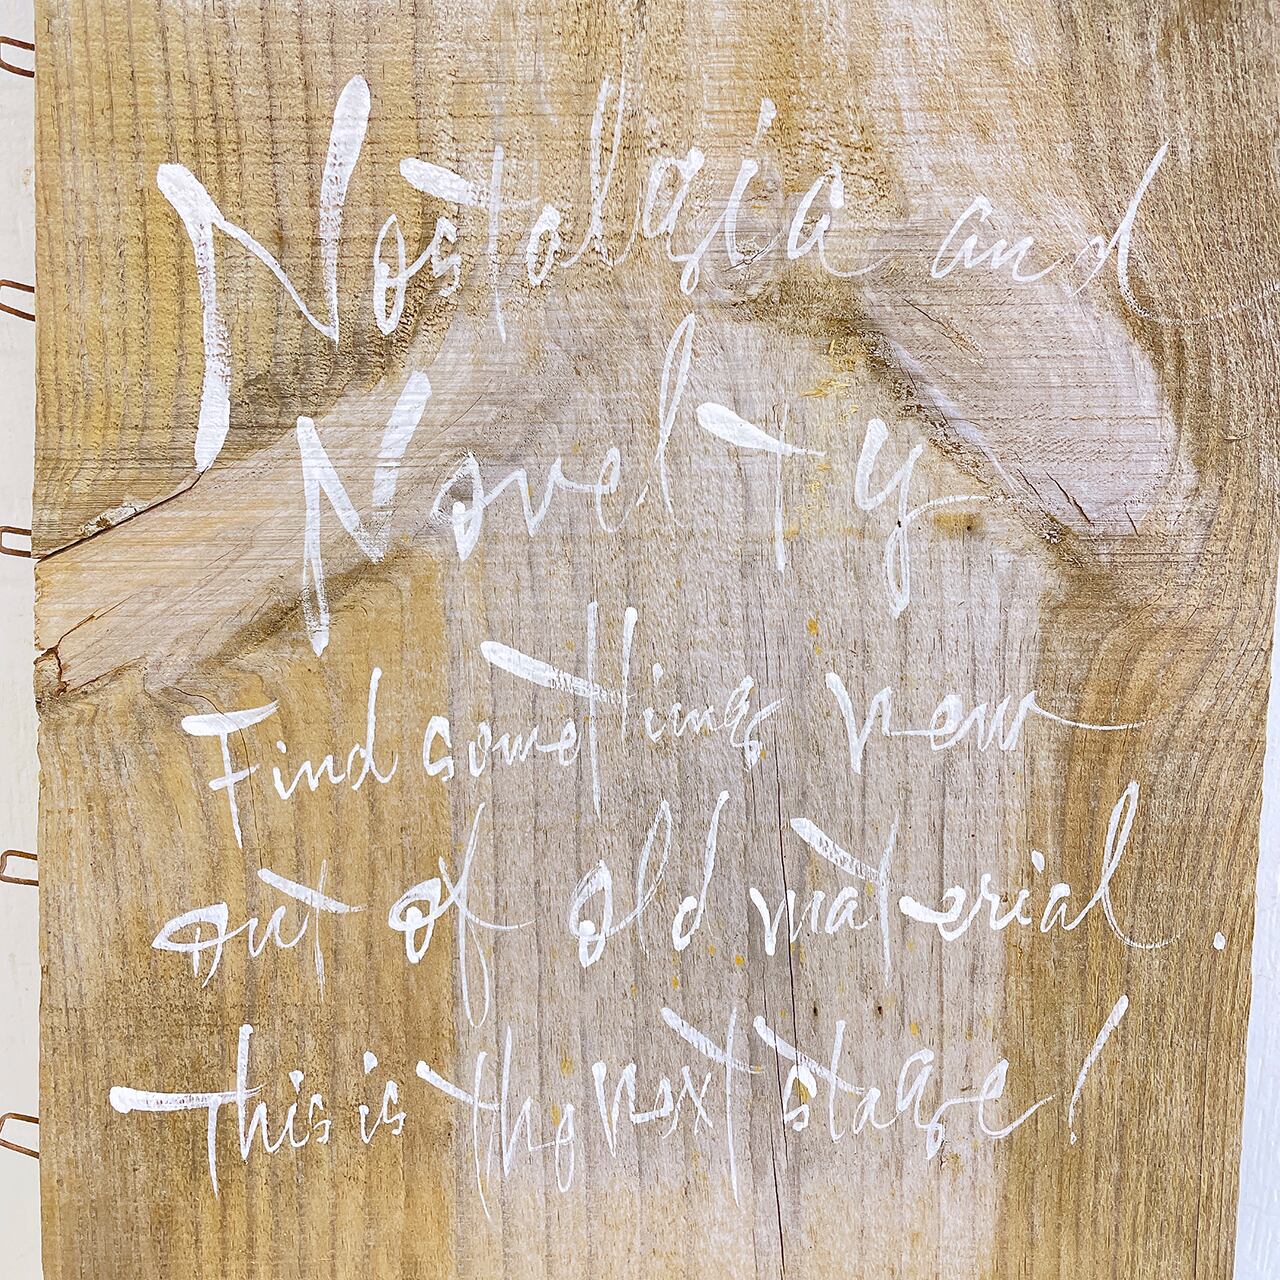 Nostalgia and
Novelty
Find something new
out of old material.
This is the next stage!